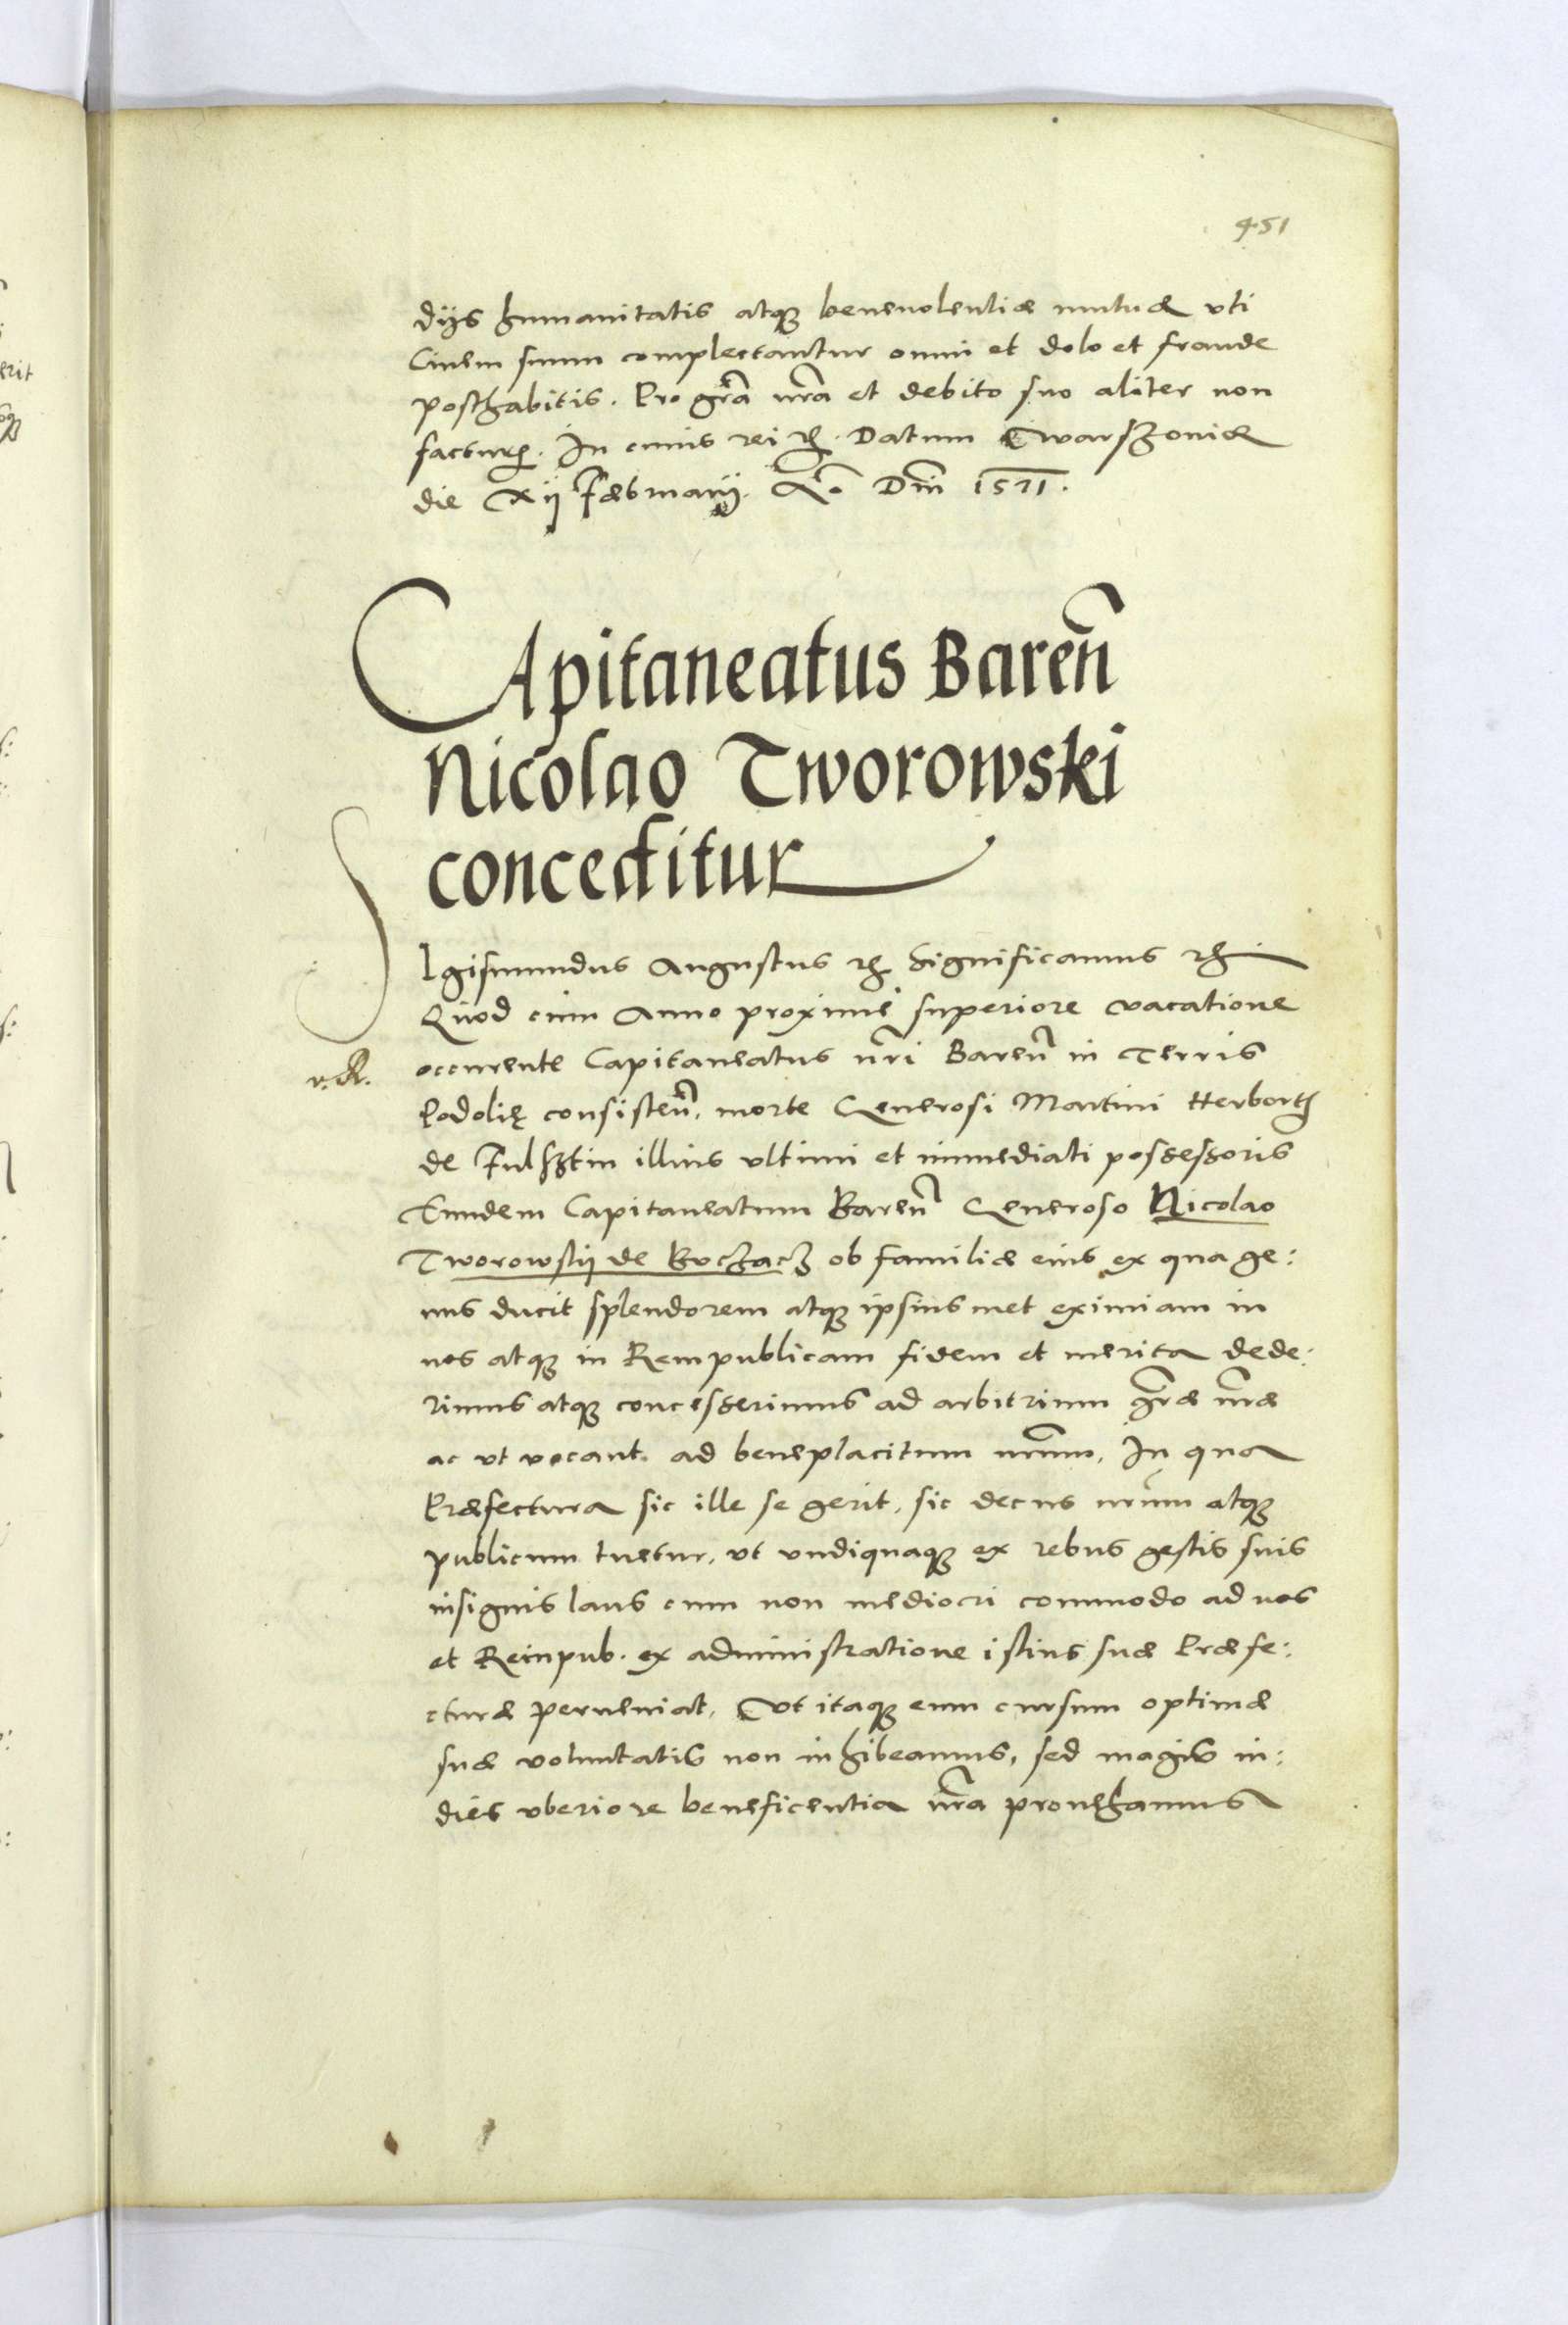 451
dijs humanitatis atq3 beneuolentiæ mutuæ vti
Ciuem suum complectantur omni et dolo et fraude
posthabitis. Pro gr̃a nr̃a et debito suo aliter non
factur. In cuius rei etc. Datum Warszouiæ
die xij Fæbruarij. Ao Dni 1571.
CApitaneatus Bareñ
Nicolao Tworowski
conceditur
SIgismundus Augustus etc Significamus etc
Quod cum Anno proximè superiore vacatione
occurente Capitaneatus nr̃i Bareñ in Terris
v.R.
Podolię consisteñ, morte Generosi Martini Herborth
de Fulsztin illius vltimi et immediati possessoris
Eundem Capitaneatum Bareñ Generoso Nicolao
Tworowskij de Buczacz ob familiæ eius ex qua ge:
nus ducit splendorem atq3 ipsius met eximiam in
nos atq3 in Rempublicam fidem et merita dede:
rimus atq3 concesserimus ad arbitrium gr̃æ nr̃æ
ac vt vocant ad beneplacitum nr̃um, In qua
Præfectura sic ille se gerit, sic decus nr̃um atq3
publicum tuetur, vt vndiquaq3 ex rebus gestis suis
insignis laus cum non mediocri commodo ad nos
et Reinpub. ex administratione istius suæ Præfe:
cturæ perueniat, Vt itaq3 eum cursum optimæ
suæ voluntatis non inhibeamus, sed magis in:
dies vberiore beneficentia nr̃a prouehamus